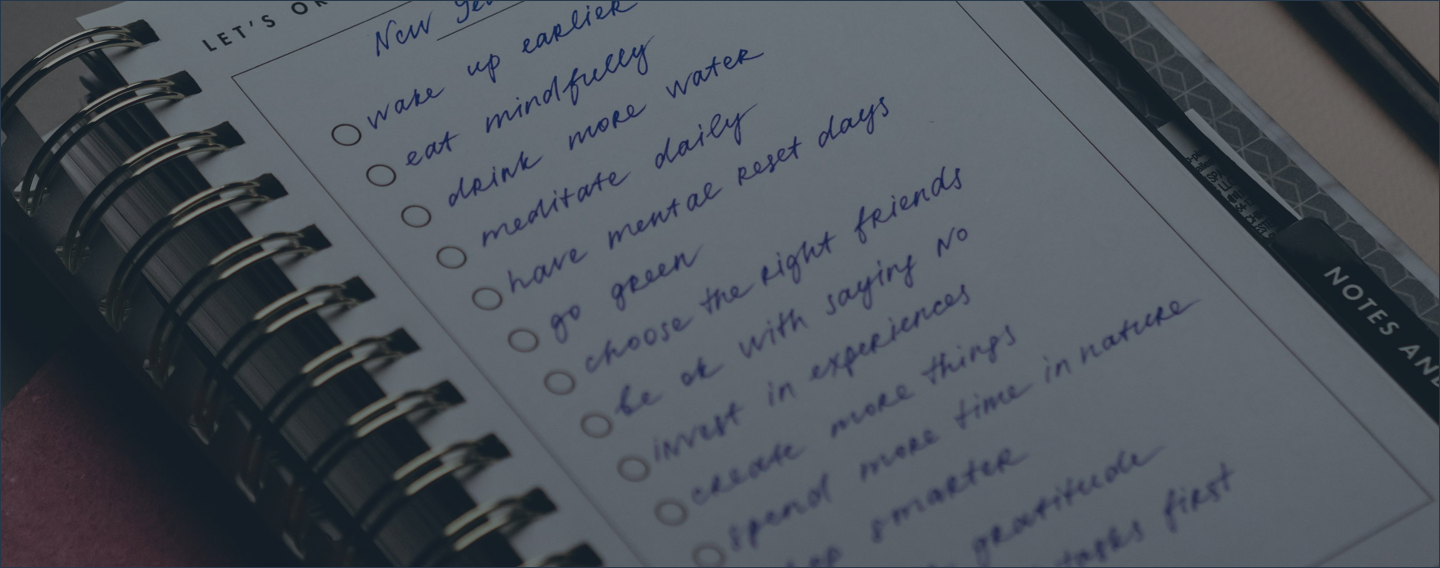 LET'S OR
New Yea
wake up earlier
eat mindfully
drink more water
meditate daily
have mental reset days
go green
choose the right friends
be ok with saying No
invest in experiences
create more things
spend more time in nature
smarter
gratitude
tasks first
NOTES AND